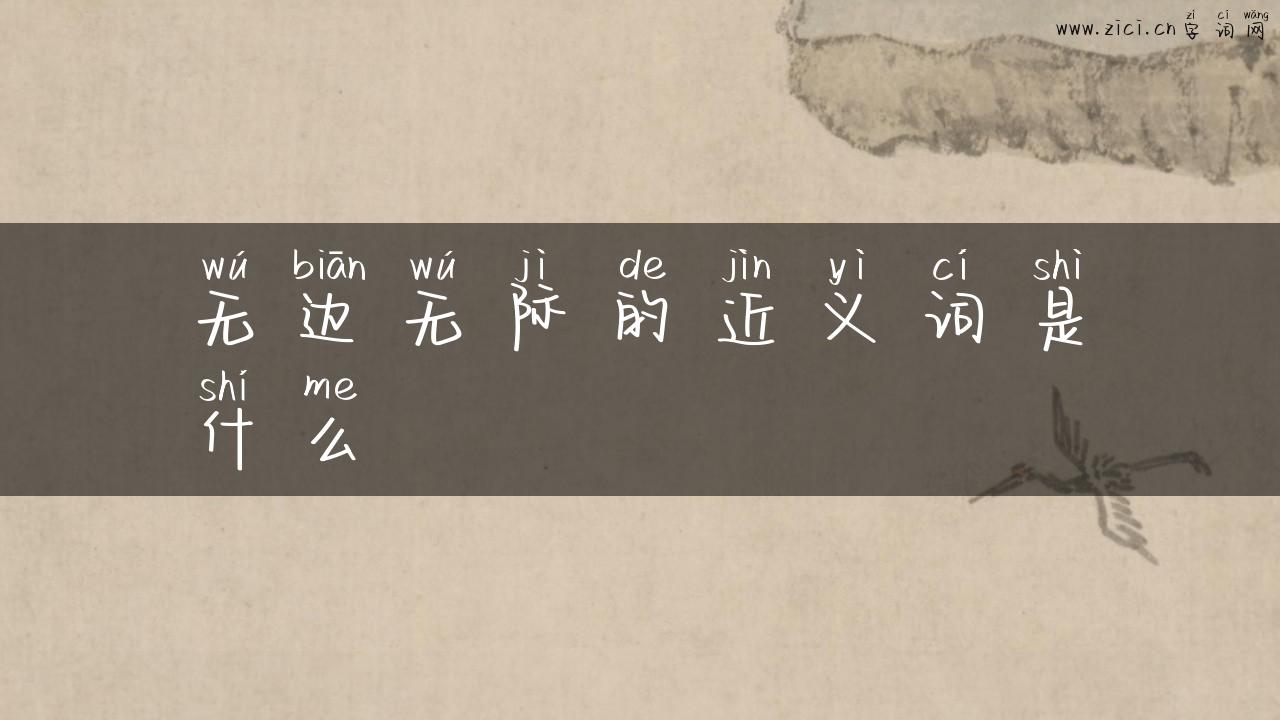 zì cí wǎng
www.zici.cn字词网
wú biān wú jì de jìn yì cí shì
无边无际的近义词是
shí me
什么